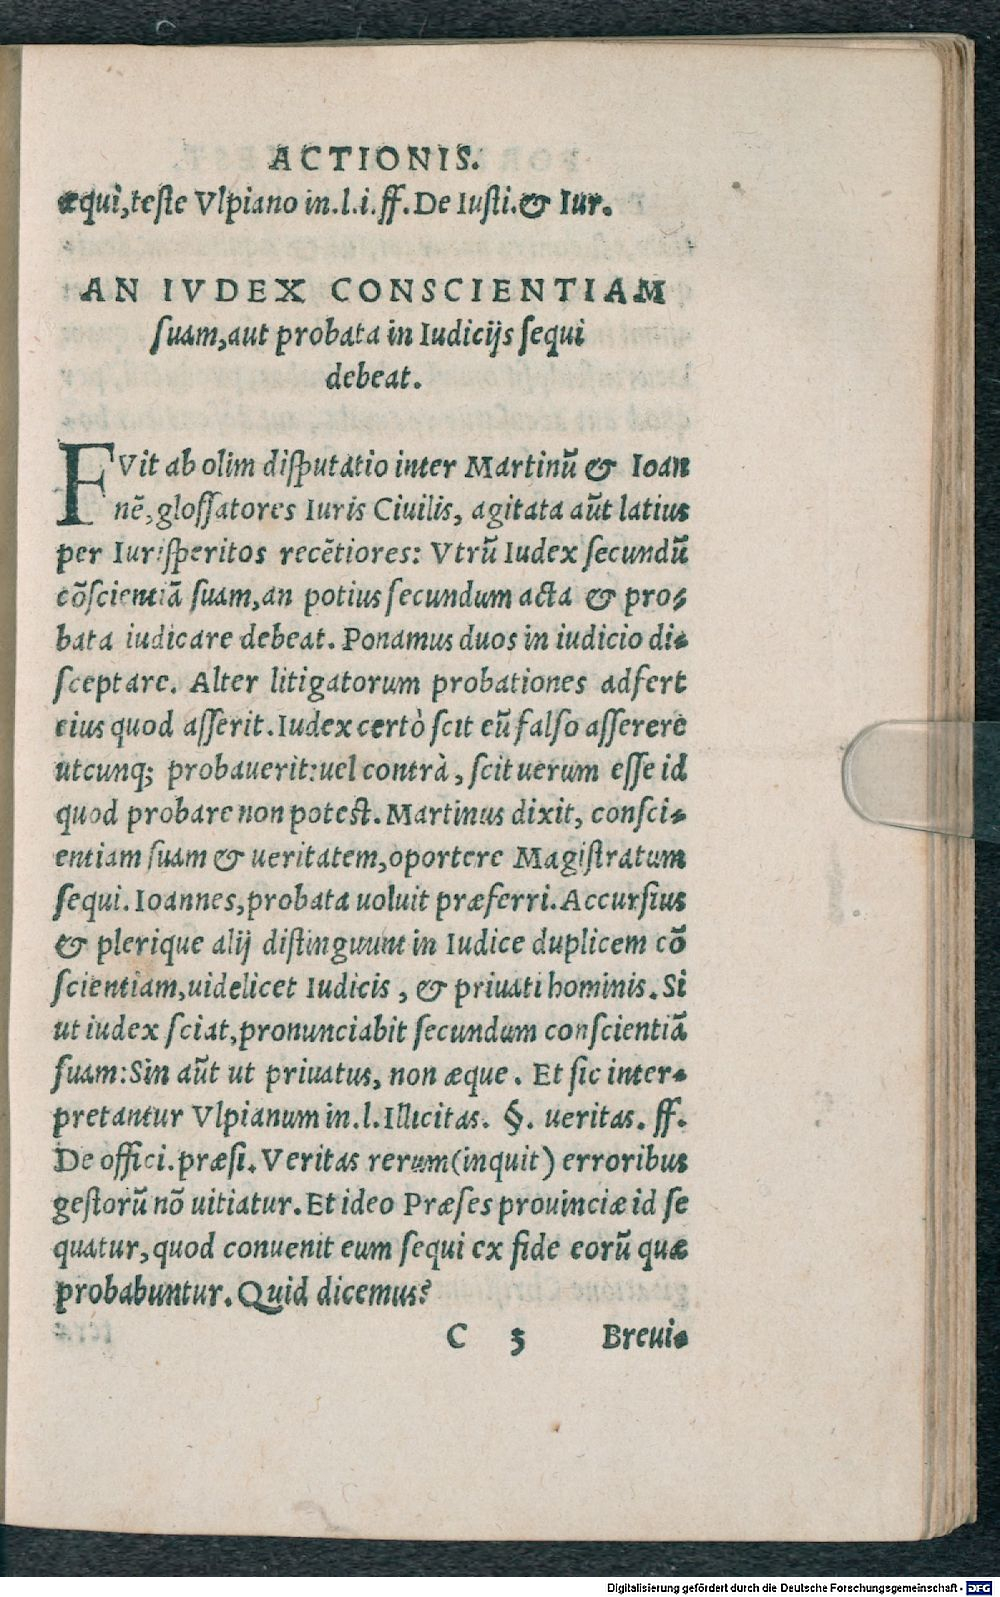 ACTIONIS.
æqui, teste Vlpiano in .l.i.ff. De Iusti. & Iur.
AN IVDEX CONSCIENTIAM
suam, aut probata in Iudicijs sequi
debeat.
FVit ab olim disputatio inter Martinū & Ioan
nē, glossatores Iuris Ciuilis, agitata aūt latius
per Iurisperitos recētiores: Vtrū Iudex secundū
cōscientiā suam, an potius secundum acta & pro-
bata iudicare debeat. Ponamus duos in iudicio di-
sceptare. Alter litigatorum probationes adfert
eius quod asserit. Iudex certò scit eū falso asserere
utcunq; probauerit: uel contrà, scit uerum esse id
quod probare non potest. Martinus dixit, consci-
entiam suam & ueritatem, oportere Magistratum
sequi. Ioannes, probata uoluit præferri. Accursius
& plerique alij distinguunt in Iudice duplicem cō
scientiam, uidelicet Iudicis, & priuati hominis. Si
ut iudex sciat, pronunciabit secundum conscientiā
suam: Sin aūt ut priuatus, non æque. Et sic inter-
pretantur Vlpianum in .l. Illicitas. §. ueritas. ff.
De offici. præsi. Veritas rerum (inquit) erroribus
gestorū nō uitiatur. Et ideo Præses prouinciæ id se
quatur, quod conuenit eum sequi ex fide eorū quæ
probabuntur. Quid dicemus?
C 3 Breui-
Digitalisierung gefördert durch die Deutsche Forschungsgemeinschaft - DFG